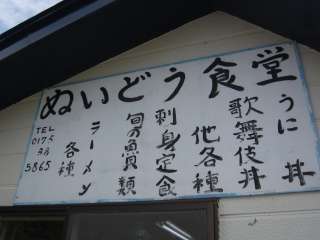 ぬいどう食堂
うに丼
歌舞伎丼
他各種
刺身定食
旬の魚類
ラーメン
各種
TEL
0175
38
5865